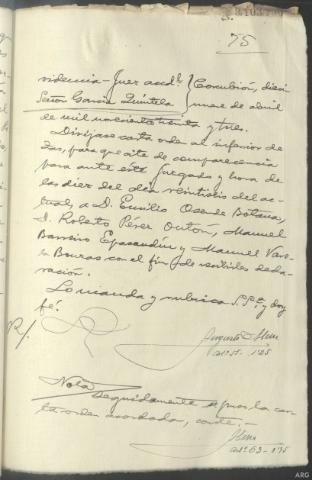 75
videncia - Juez accdl
Señor García Quintela
Corcubión, diez
de abril
de mil novecientos treinta y tres.
Diríjase carta orden al inferior de
para que cite de comparecencia
para ante este Juzgado y hora de
las diez del dia veintiseis del ac-
tual, a D. Emilio Osende Bótana,
D. Roberto Pérez Outón, Manuel
Barreiro y Manuel Vare-
la Bouzas con el fin de recibirles decla-
ración.
Lo manda y rubrica S.Sª; doy
fé.
R/.
Nota
Seguidamente se puso la car-
ta orden acordada, conste. -
ARG